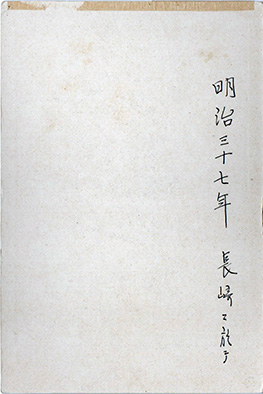 明治三十七年 長崎ニ於テ